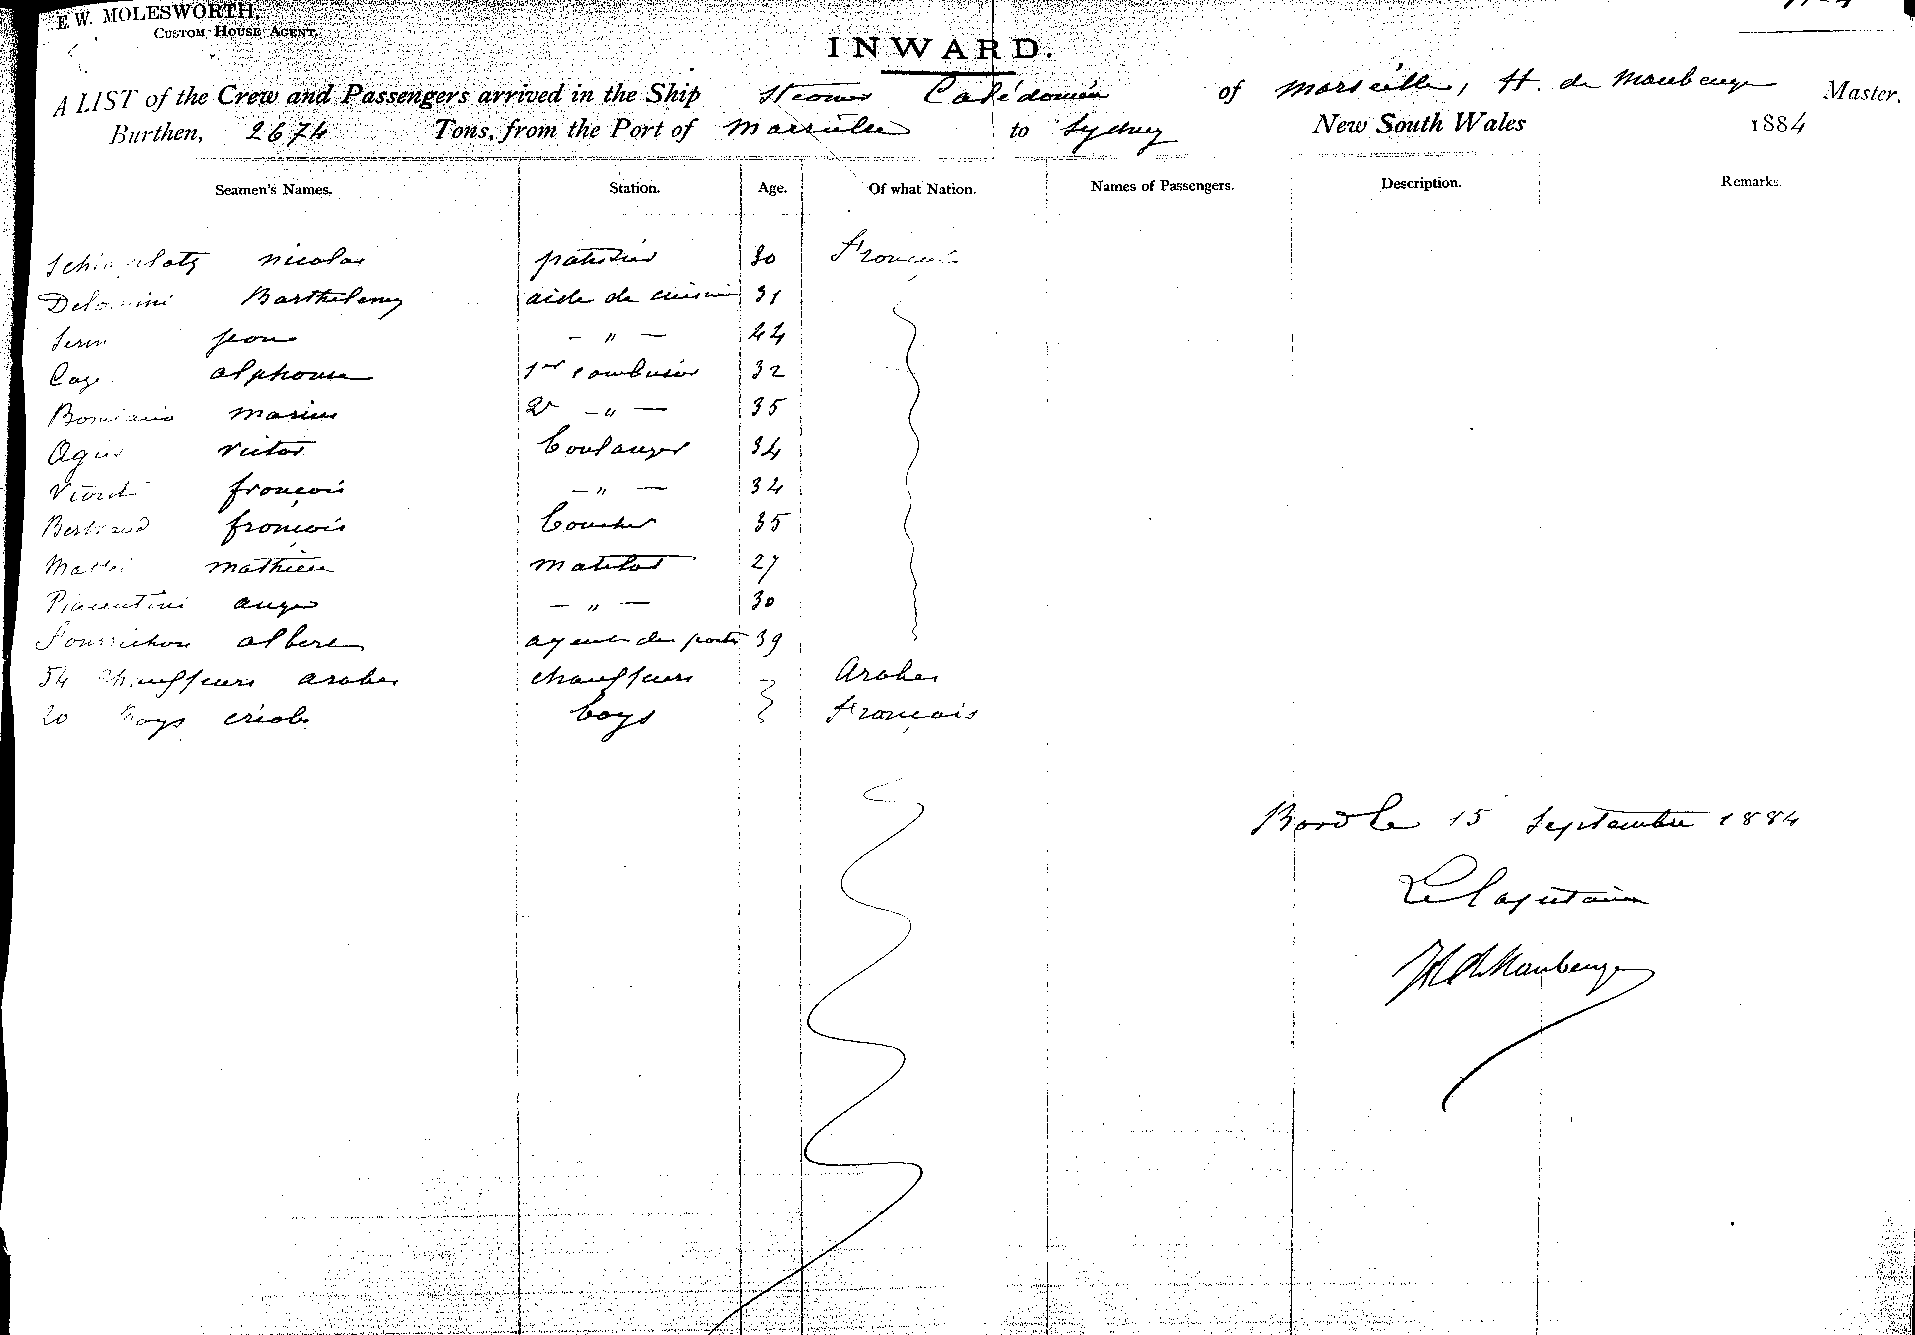 E. W. MOLESWORTH,
CUSTOM HOUSE AGENT.
INWARD.
A LIST of the Crew and Passengers arrived in the Ship Steamer Calédonien of Marseille, H. de Maubeuge Master.
Burthen, 2674 Tons, from the Port of Marseilles to Sydney New South Wales 1884
Seamen's Names. Station. Age. Of what Nation. Names of Passengers. Description. Remarks.
nicolas patissier 30 Français
Barthelemy aide de cuisine 31
Jean — " — 44
alphonse 1er cambusier 32
marius 2e — " — 35
victor boulanger 34
françois — " — 34
Bertrand françois boucher 35
Mattei mathieu matelot 27
Piacentini ange — " — 30
Fourrichon albert agent des postes 39
54 chauffeurs arabes chauffeurs Arabes
20 boys créols boys Français
Bord le 15 Septembre 1884
Le Capitaine
H de Maubeuge